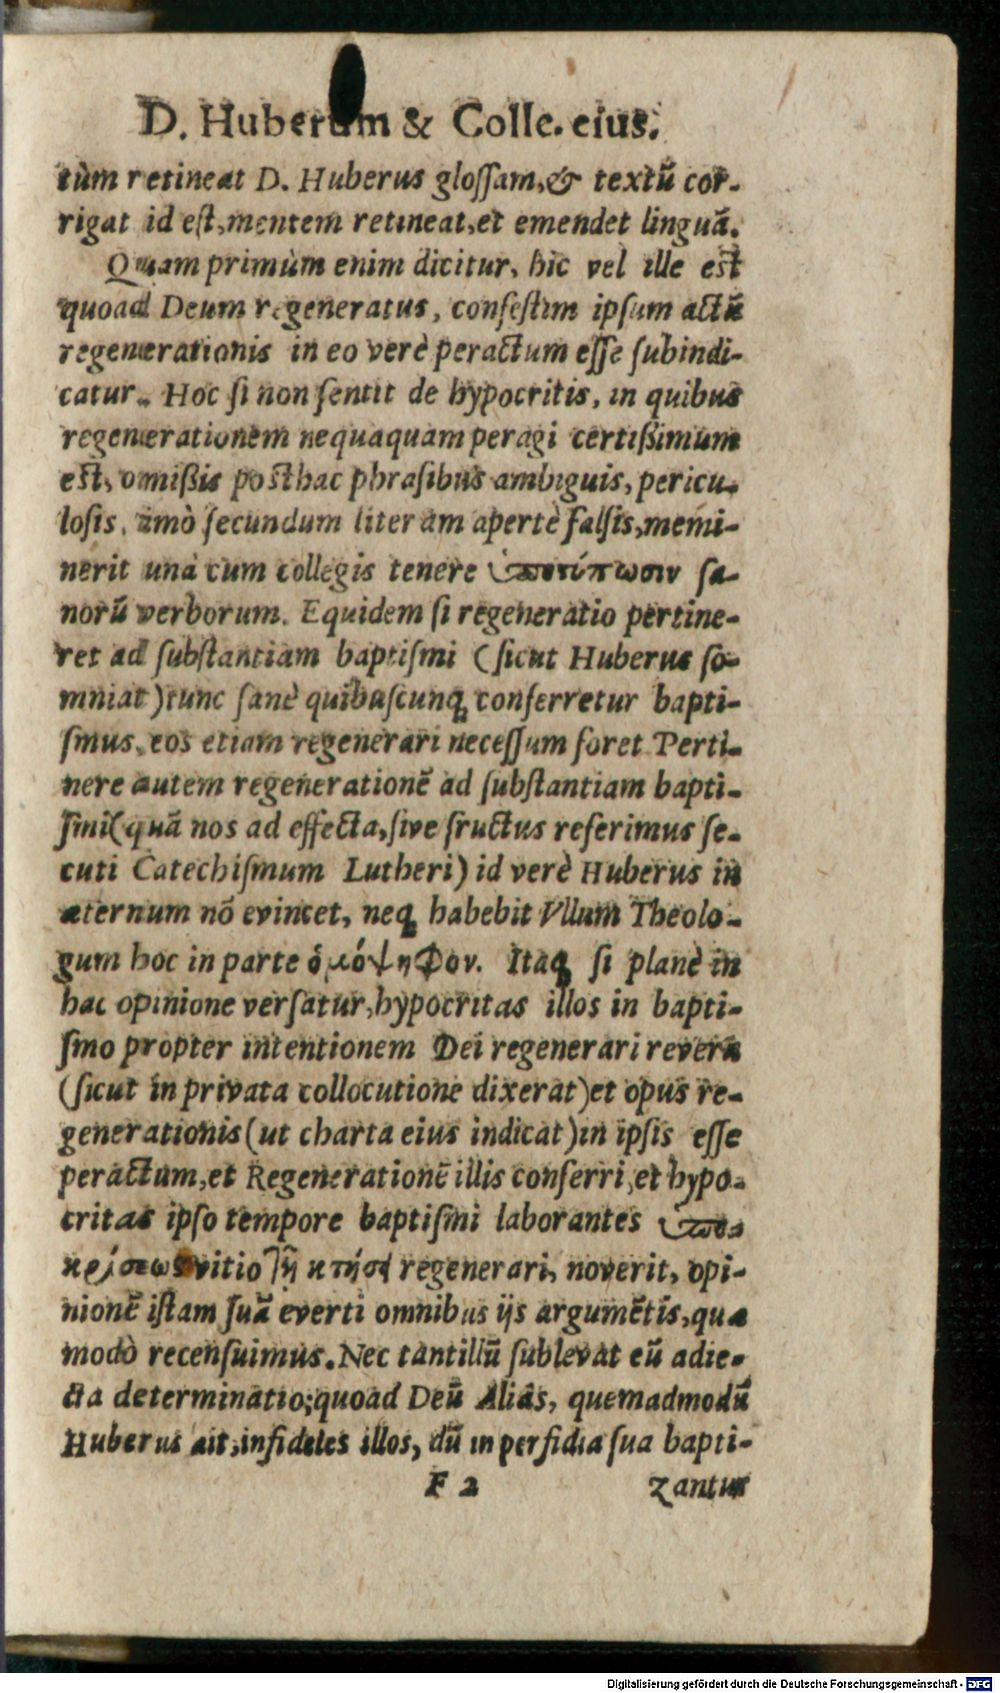 D. Huberum & Colle. eius.
tùm retineat D. Huberus gloſſam, & textũ cor-
rigat id eſt, mentem retineat, et emendet linguã.
Quam primùm enim dicitur, hic vel ille eſt
quoad Deum regeneratus, confeſtim ipſum actũ
regenerationis in eo verè peractum eſſe ſubindi-
catur. Hoc ſi non ſentit de hypocritis, in quibus
regenerationem nequaquam peragi certißimum
eſt, omißis poſthac phraſibus ambiguis, pericu-
loſis, imò ſecundum literam apertè falſis, memi-
nerit unà cum collegis tenere ὑποτύπωσιν ſa-
norũ verborum. Equidem ſi regeneratio pertine-
ret ad ſubſtantiam baptiſmi (ſicut Huberus ſo-
mniat) tunc ſanè quibuſcunq; conferretur bapti-
ſmus, eos etiam regenerari neceſſum foret. Perti-
nere autem regenerationẽ ad ſubſtantiam bapti-
ſmi (quã nos ad effecta, ſive fructus referimus ſe-
cuti Catechiſmum Lutheri) id verè Huberus in
æternum nõ evincet, neq; habebit Vllum Theolo-
gum hoc in parte ὁμόψηφον. Itaq; ſi planè in
hac opinione verſatur, hypocritas illos in bapti-
ſmo propter intentionem Dei regenerari reverà
(ſicut in privata collocutione dixerat) et opus re-
generationis (ut charta eius indicat) in ipſis eſſe
peractum, et Regenerationẽ illis conferri, et hypo-
critas ipſo tempore baptiſmi laborantes ὑπο-
κρίσεως vitio τῇ κτήσει regenerari, noverit, opi-
nionẽ iſtam ſuã everti omnibus ijs argumẽtis, quæ
modò recenſuimus. Nec tantillũ ſublevat eũ adie-
cta determinatio; quoad Deũ Aliàs, quemadmodũ
Huberus ait, infideles illos, dũ in perfidia ſua bapti-
F 2 zantur
Digitalisierung gefördert durch die Deutsche Forschungsgemeinschaft - DFG